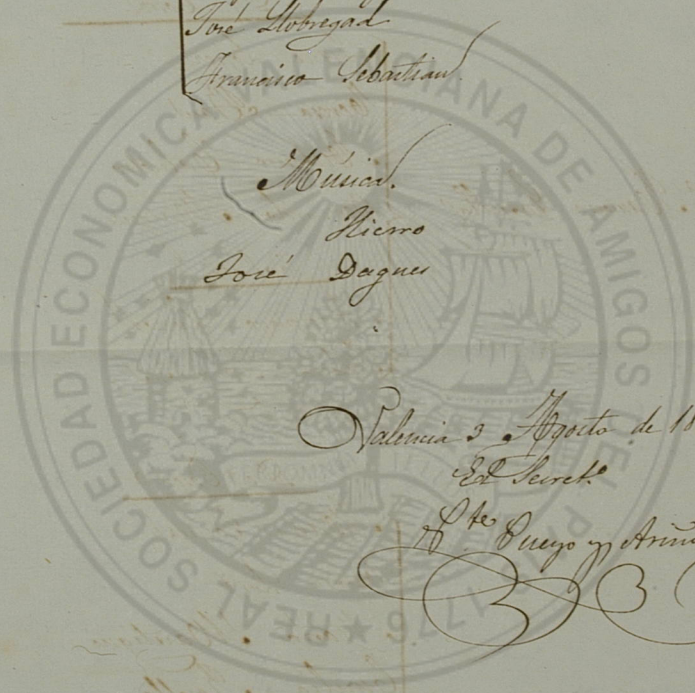 José Llobregad
Francisco Sebastian
Música
Hierro
José Dagues
Valencia 3 Agosto de 18
El Secret.º
Pueyo y Ariño
REAL SOCIEDAD ECONOMICA VALENCIANA DE AMIGOS DEL PAIS 1776